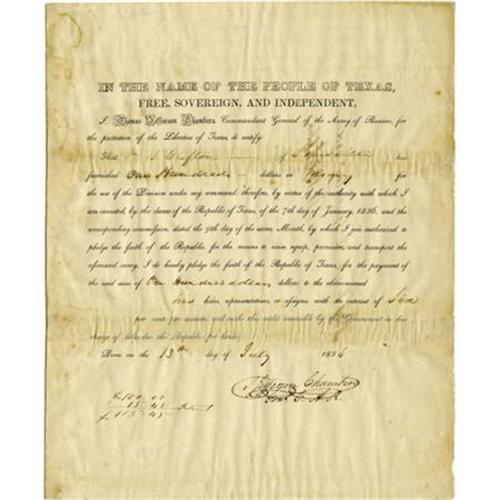 IN THE NAME OF THE PEOPLE OF TEXAS,
FREE, SOVEREIGN, AND INDEPENDENT.
I, Thomas Jefferson Chambers, Commandant General of the Army of Reserve, for
the protection of the Liberties of Texas, do certify
That of has
furnished One Hundred dollars in Money for
the use of the Division under my command, therefore, by virtue of the authority with which I
am invested, by the decree of the Republic of Texas, of the 7th day of January, 1836, and the
corresponding commission, dated the 9th day of the same Month, by which I am authorized to
pledge the faith of the Republic for the means to raise, equip, provision, and transport the
aforesaid army, I do hereby pledge the faith of the Republic of Texas, for the payment of
the said sum of One Hundred dollars to the above-named
heirs, representatives, or assigns, with the interest of Six
per cent per annum; and make this receivable by the Government in
charge of dues the Republic
Done on the 13th day of July 1836
T. Jefferson Chambers
$ 100.00
13.45
$ 113.45